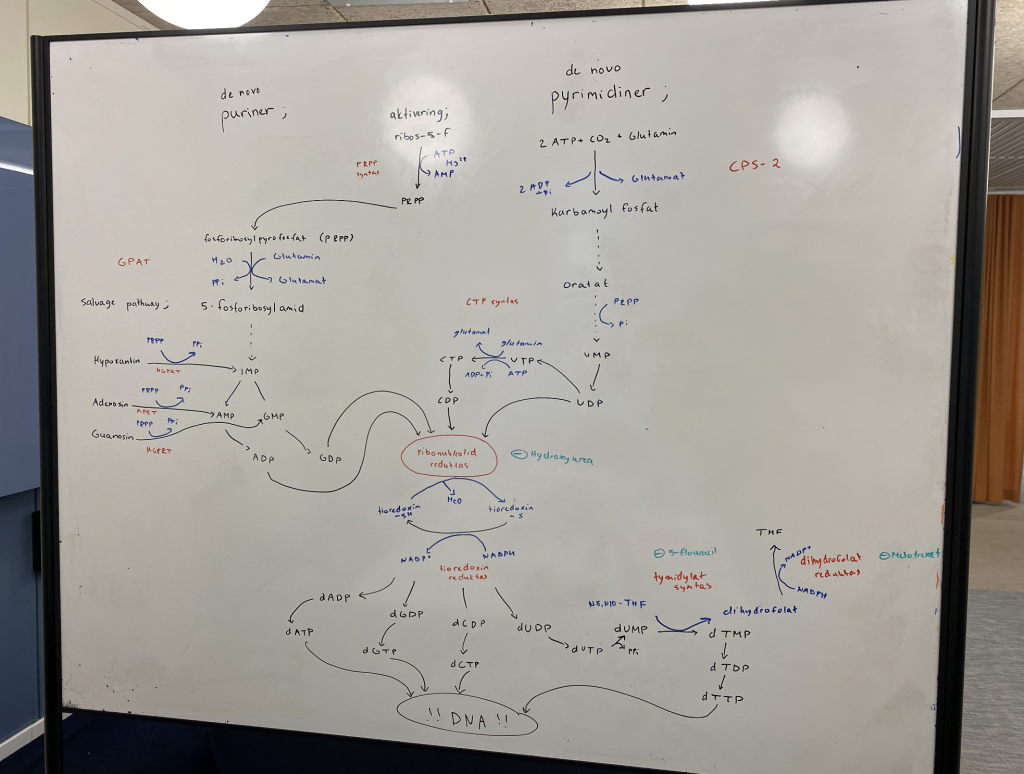 de novo
puriner ;
aktivering;
ribos-5-f
PRPP
syntas
ATP
Mg²⁺
AMP
PRPP
de novo
pyrimidiner ;
2 ATP + CO₂ + Glutamin
CPS-2
2 ADP
+Pi
Glutamat
Karbamoyl fosfat
fosforibosylpyrofosfat (PRPP)
GPAT
H₂O
Glutamin
PPi
Glutamat
Salvage pathway;
5-fosforibosylamid
Oratat
PRPP
Pi
UMP
UDP
CTP syntas
glutamat
glutamin
CTP
UTP
ADP+Pi
ATP
CDP
PRPP
PPi
Hypoxantin
HGPRT
IMP
PRPP
PPi
Adenosin
APRT
AMP
GMP
PRPP
PPi
Guanosin
HGPRT
ADP
GDP
ribonukleotid
reduktas
Hydroxyurea
tioredoxin
-SH
H₂O
tioredoxin
-S
NADP⁺
NADPH
tioredoxin
reduktas
dADP
dATP
dGDP
dGTP
dCDP
dCTP
dUDP
dUTP
dUMP
PPi
N5,N10-THF
5-flouracil
tymidylat
syntas
THF
NADP⁺
dihydrofolat
reduktas
NADPH
dihydrofolat
dTMP
dTDP
dTTP
!! DNA !!